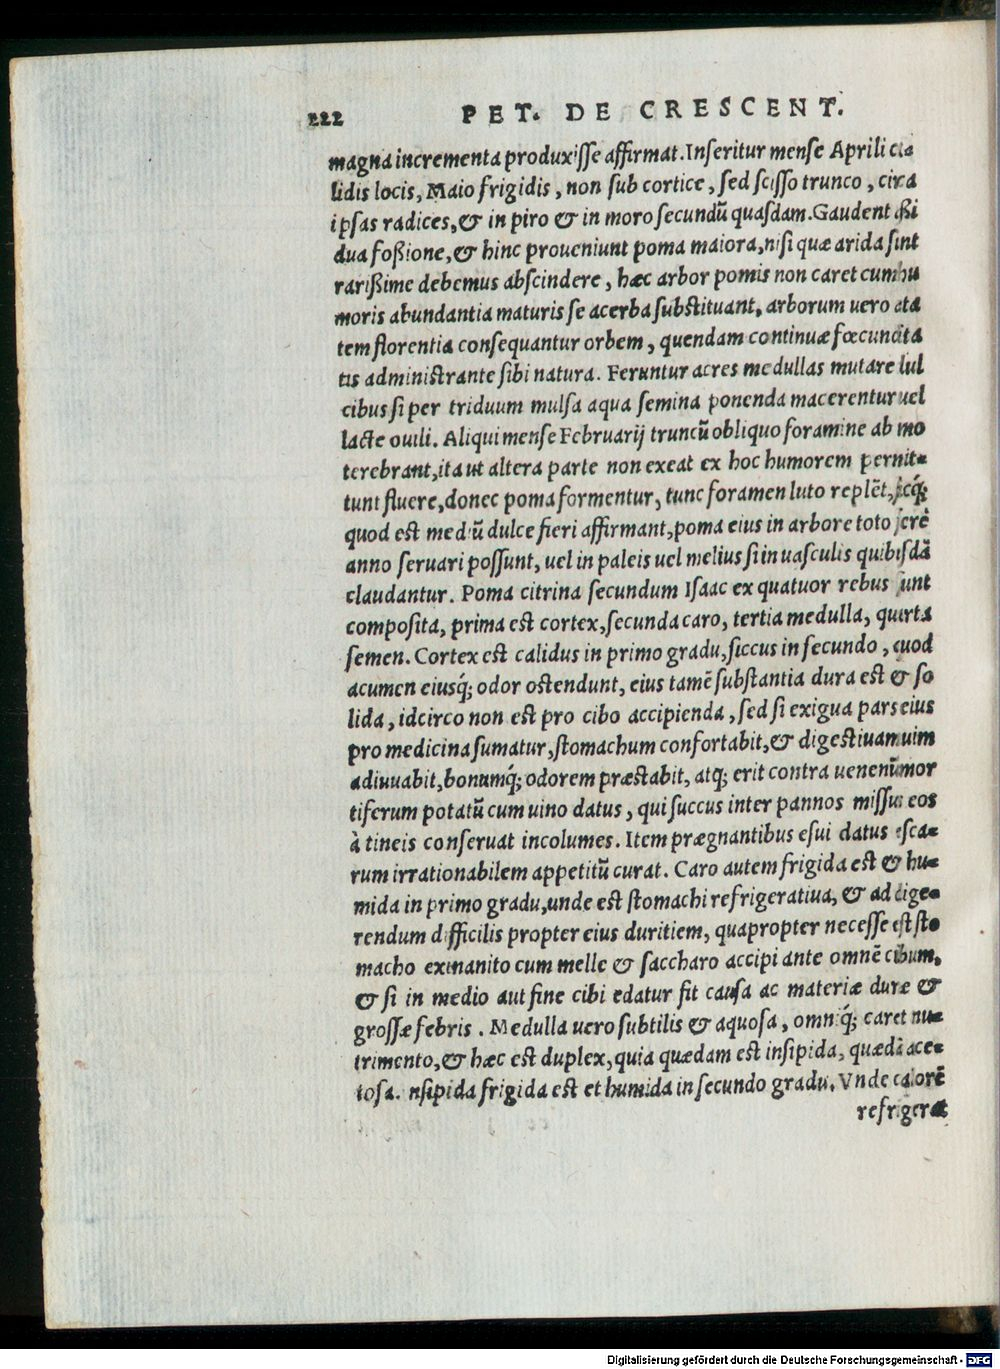 222 PET. DE CRESCENT.
magna incrementa produxisse affirmat. Inseritur mense Aprili ca
lidis locis, Maio frigidis, non sub cortice, sed scisso trunco, circa
ipsas radices, & in piro & in moro secundũ quasdam. Gaudent aßi
dua foßione, & hinc proueniunt poma maiora, nisi quæ arida sint
rarißime debemus abscindere, hæc arbor pomis non caret cum hu
moris abundantia maturis se acerba substituant, arborum uero æta
tem florentia consequantur orbem, quendam continuæ fœcundita
tis administrante sibi natura. Feruntur acres medullas mutare lul
cibus si per triduum mulsa aqua semina ponenda macerentur uel
lacte ouili. Aliqui mense Februarij truncũ obliquo foramine ab imo
terebrant, ita ut altera parte non exeat ex hoc humorem permit-
tunt fluere, donec poma formentur, tunc foramen luto replẽt, sicq́;
quod est mediũ dulce fieri affirmant, poma eius in arbore toto ferè
anno seruari possunt, uel in paleis uel melius si in uasculis quibusdã
claudantur. Poma citrina secundum Isaac ex quatuor rebus sunt
composita, prima est cortex, secunda caro, tertia medulla, quarta
semen. Cortex est calidus in primo gradu, siccus in secundo, quod
acumen eiusq́; odor ostendunt, eius tamẽ substantia dura est & so
lida, idcirco non est pro cibo accipienda, sed si exigua pars eius
pro medicina sumatur, stomachum confortabit, & digestiuam uim
adiuuabit, bonumq́; odorem præstabit, atq; erit contra uenenũ mor
tiferum potatũ cum uino datus, qui succus inter pannos missus eos
à tineis conseruat incolumes. Item prægnantibus esui datus esca-
rum irrationabilem appetitũ curat. Caro autem frigida est & hu-
mida in primo gradu, unde est stomachi refrigeratiua, & ad dige-
rendum difficilis propter eius duritiem, quapropter necesse est sto
macho exinanito cum melle & saccharo accipi ante omnẽ cibum,
& si in medio aut fine cibi edatur fit causa ac materiæ duræ &
grossæ febris. Medulla uero subtilis & aquosa, omniq́; caret nu-
trimento, & hæc est duplex, quia quædam est insipida, quædã ace-
tosa. nsipida frigida est et humida in secundo gradu. Vnde calorẽ
refrigerat
Digitalisierung gefördert durch die Deutsche Forschungsgemeinschaft - DFG